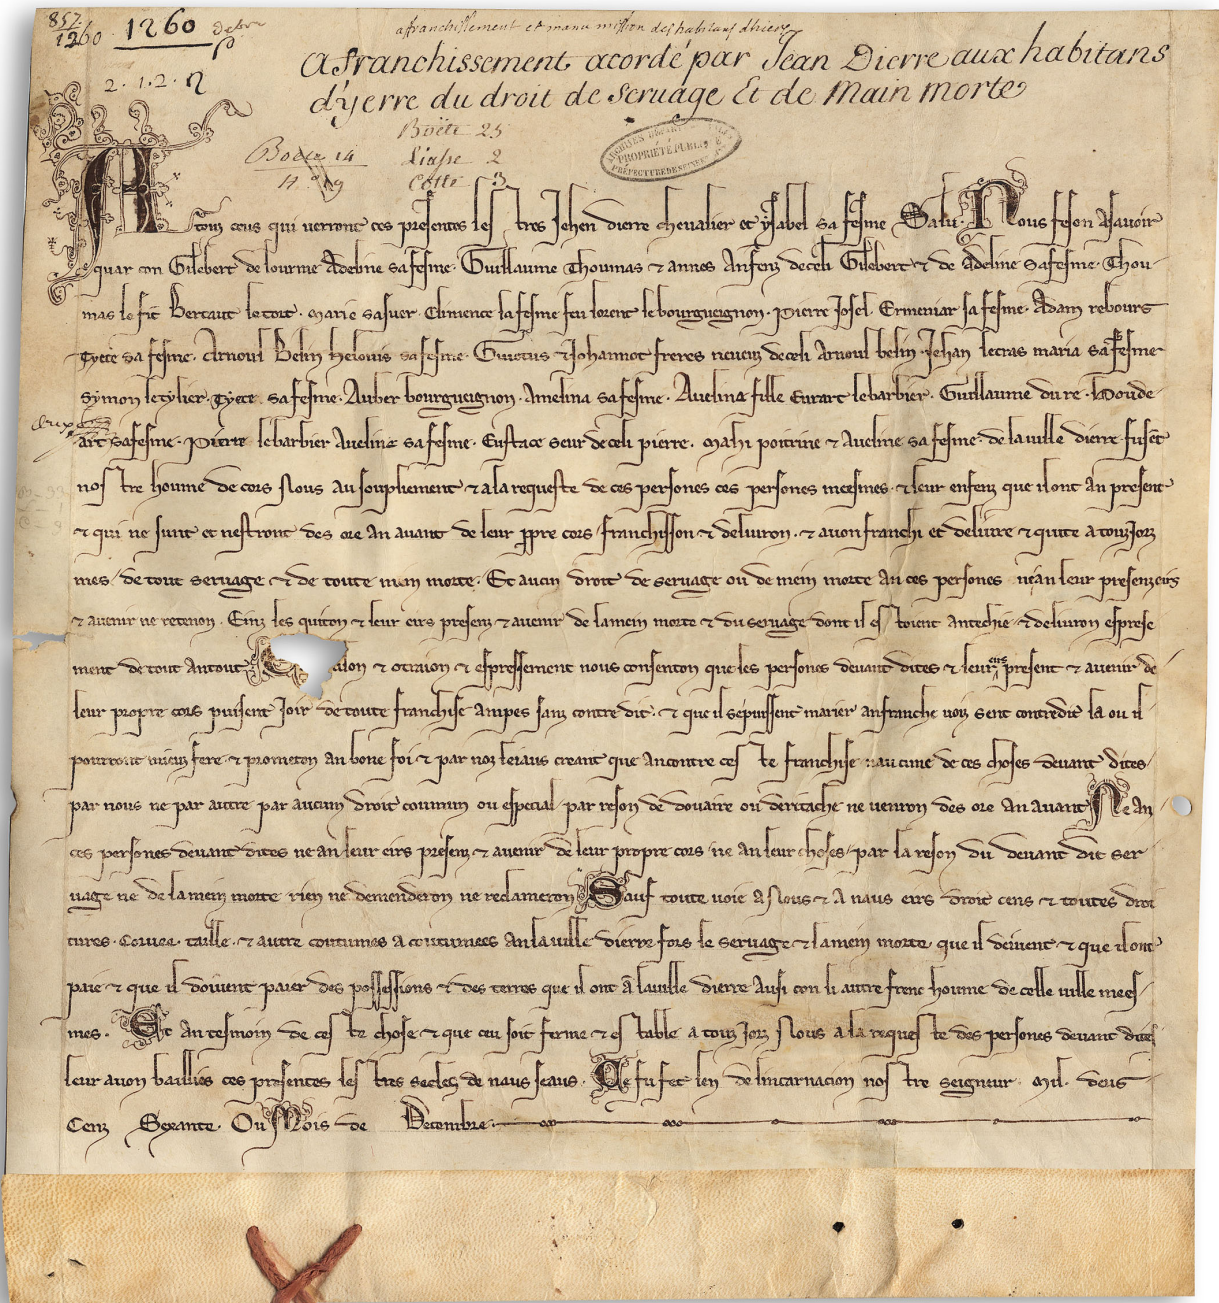 857.
1260
1260 · 1260
affranchissement et manu mission des habitans dhierre
Afranchissement acordé par Jean Dierre aux habitans
d'yerre du droit de seruage Et de Main morte
2 . 1 . 2 .
Boëte 25
Boëte 14 Liasse 2
N° 9 Cotte 3
ARCHIVES DEPART
PROPRIÉTÉ PUBLIQUE
PRÉFECTURE DE SEINE ET
A touz ceus qui verront ces presentes lestres Jehen dierre chevalier et ysabel sa fesme Salu. Nous feson asavoir
quar con Gilebert de lourme Adeline sa fesme. Guillaume Thoumas & annes Anfenz de celi Gilebert & de Adeline sa fesme. Thou-
mas le fiz Bertaut le tort. Marie sa suer. Climence la fesme feu lorent le bourgueignon. Pierre Josel. Ermeniar sa fesme. Adam rebours
Tyece sa fesme. Arnoul Belin Helouis sa fesme. Guiotus & Johannot freres neveuz de celi Arnoul belin. Jehan lecras maria sa fesme
Symon le tylier. Tyece sa fesme. Auber bourgueignon. Amelina sa fesme. Aveline fille Evrart le barbier. Guillaume du re. Houde-
art sa fesme. Pierre le barbier Aveline sa fesme. Eustace seur de celi pierre. Mahi poitrine & Aveline sa fesme. de la ville dierre fuset
nostre houme de cors Nous au soupliement & a la requeste de ces persones ces persones meesmes. & leur enfenz que il ont an present
& qui ne sunt et nestront des ore an avant de leur ppre cors franchisson & delivron. & avon franchi et delivre & quite a touz jorz
mes / de tout servage & de toute mein morte. Et aucun droit de servage ou de mein morte an ces persones ne an leur presenz eirs
& avenir ne retenon. Einz les quiton & leur eirs presenz & avenir de la mein morte & du servage dont il estoient antechie & delivron esprese
ment de tout an tout alon & otraion & espressement nous consenton que les persones devant dites & leur eirs present & avenir de
leur propre cors puisent joir de toute franchise ampes sanz contredit. & que il se puissent marier an franche voiz sent contredit la ou il
porront mieuz fere. & prometon an bone foi & par noz leiaus creant que ancontre ceste franchise n aucune de ces choses devant dites
par nous ne par autre par aucun droit coumun ou especial par reson de douaire ou deritache ne venron des ore an avant Ne an
ces persones devant dites ne an leur eirs presenz & avenir de leur propre cors ne an leur choses par la reson du devant dit ser
vage ne de la mein morte rien ne demenderon ne reclameron Sauf toute voie a Nous & a naus eirs droit cens & toutes droi
tures. Corvee. taille. & autre coutumes acoutumees an la ville dierre fors le servage & la mein morte que il deivent & que il ont
paie & que il doivent paier des possessions & des terres que il ont a la ville dierre Ausi con li autre frenc houme de celle ville mees-
mes. Et an tesmoin de ceste chose & que ceu soit ferme & estable a touz jorz Nous a la requeste des persones devant dites
leur avon bailliés ces presentes lestres seelez de naus seaus. Ce fu fet len de lincarnacion nostre seigneur Mil. deus
Cenz Sexante. Ou Mois de Decembre.